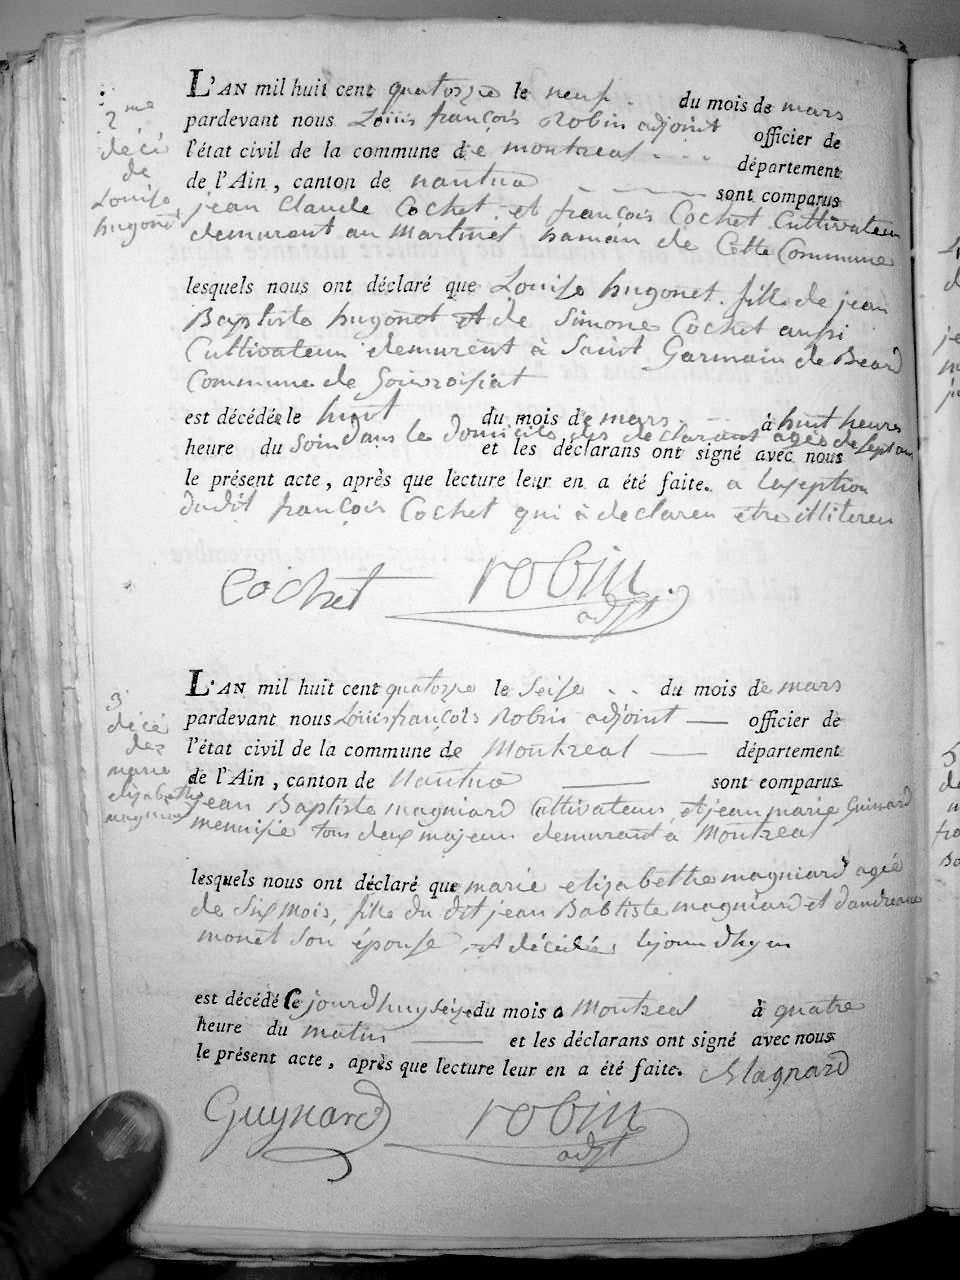 2me
décé
de
Louise
hugonet
L'AN mil huit cent quatorze le neuf . du mois de mars
pardevant nous Louis françois Robin adjoint officier de
l'état civil de la commune de montreal . . . département
de l'Ain, canton de nantua — — — sont comparus
jean Claude Cochet . et françois Cochet Cultivateur
demurent au Martinet hamau de Cette Commune
lesquels nous ont déclaré que Louise hugonet . fille de jean
Baptiste hugonet et de Simone Cochet aussi
Cultivateur demurent à Saint Garmain de Beard
Commune de
est décédée le huit du mois de mars — à huit heures
heure du Soir dans le domicile des declarant agée de Sept ans
et les déclarans ont signé avec nous
le présent acte, après que lecture leur en a été faite. a lexeption
dudit françois Cochet qui à declaren etre illiteren
Cochet robin.
adjt
3
décé
des
marie
elizabethe
magniard
L'AN mil huit cent quatorze le Seise . . du mois de mars
pardevant nous Louis françois Robin adjoint — officier de
l'état civil de la commune de Montreal — département
de l'Ain, canton de Nantua — sont comparus
jean Baptiste magniard Cultivateur, et jean marie Guinard
menuisie tous deux majeur demurant à Montreal
lesquels nous ont déclaré que marie elizabethe magniard agée
de Six mois, fille du dit jean Babtiste magniard et dandreane
monet son épouse et décédée lejourdhyer
est décédé Ce jourdhuy seize du mois a Montreal à quatre
heure du matin — et les déclarans ont signé avec nous
le présent acte, après que lecture leur en a été faite. Magnard
Guynard robin
adjt